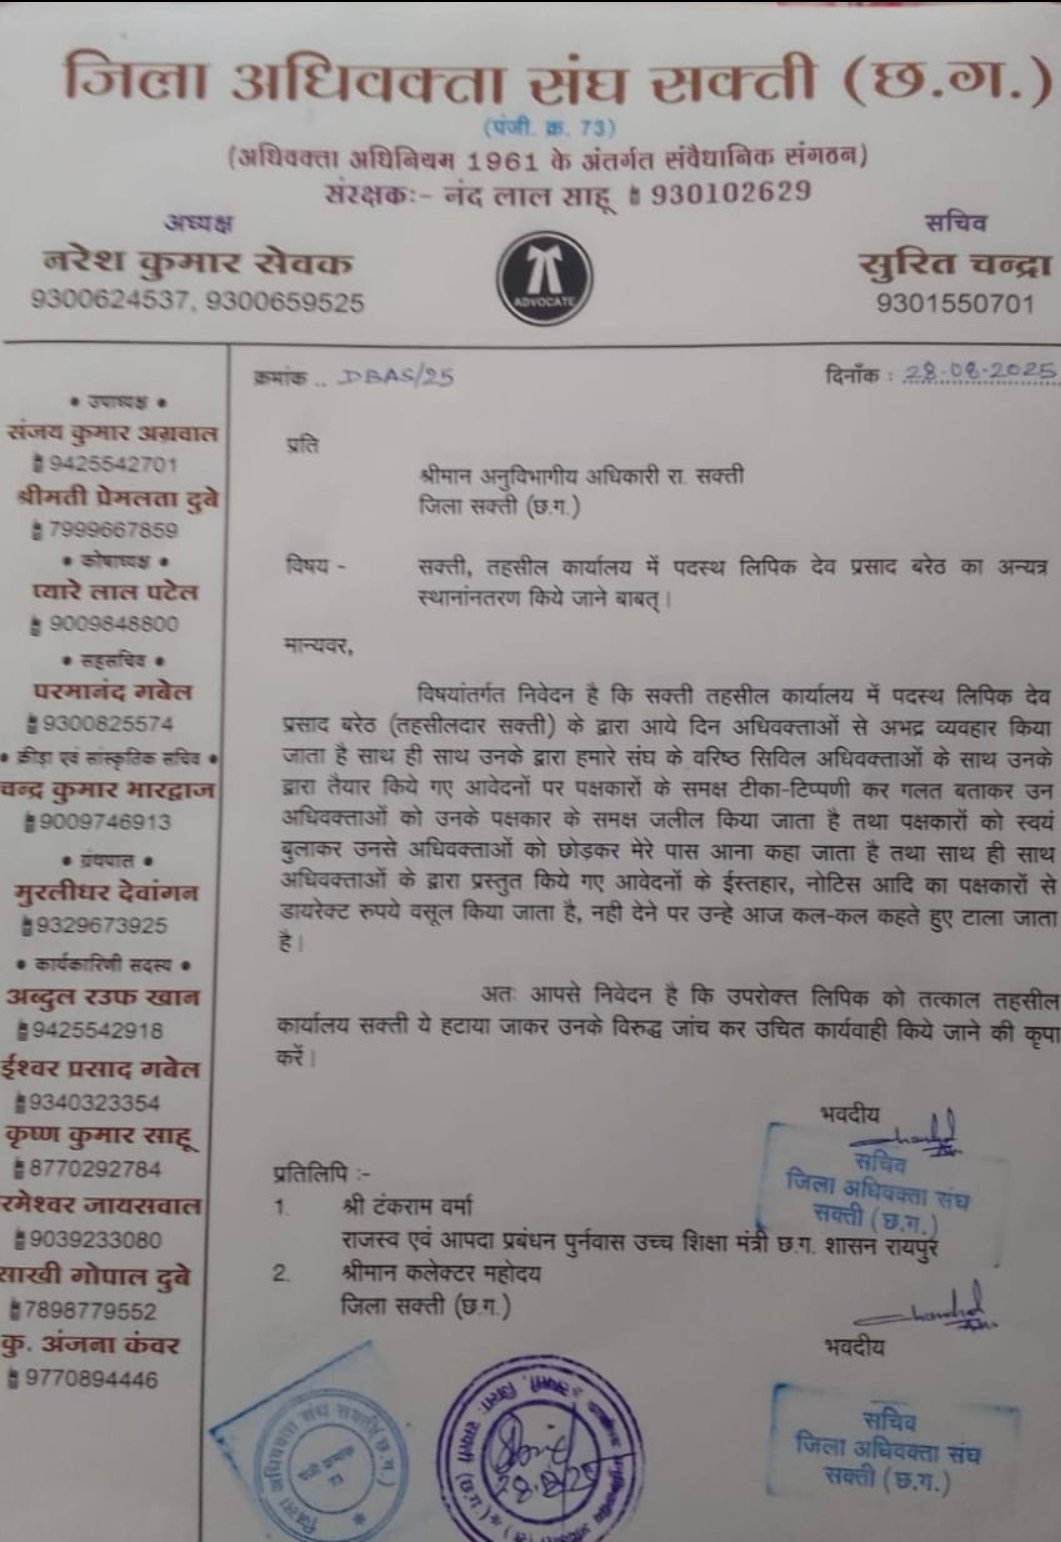 जिला अधिवक्ता संघ सक्ती (छ.ग.)
(पंजी. क्र. 73)
(अधिवक्ता अधिनियम 1961 के अंतर्गत संवैधानिक संगठन)
संरक्षकः- नंद लाल साहू 930102629
अध्यक्ष
नरेश कुमार सेवक
9300624537, 9300659525
ADVOCATE
सचिव
सुरित चन्द्रा
9301550701
• उपाध्यक्ष •
संजय कुमार अग्रवाल
9425542701
श्रीमती प्रेमलता दुबे
7999667859
• कोषाध्यक्ष •
प्यारे लाल पटेल
9009848800
• सहसचिव •
परमानंद गबेल
9300825574
• क्रीड़ा एवं सांस्कृतिक सचिव •
चन्द्र कुमार भारद्वाज
9009746913
• ग्रंथपाल •
मुरलीधर देवांगन
9329673925
• कार्यकारिणी सदस्य •
अब्दुल रउफ खान
9425542918
ईश्वर प्रसाद गबेल
9340323354
कृष्ण कुमार साहू
8770292784
रमेश्वर जायसवाल
9039233080
साखी गोपाल दुबे
7898779552
कु. अंजना कंवर
9770894446
क्रमांक .. DBAS/25
दिनाँक : 28.08.2025
प्रति
श्रीमान अनुविभागीय अधिकारी रा. सक्ती
जिला सक्ती (छ.ग.)
विषय - सक्ती, तहसील कार्यालय में पदस्थ लिपिक देव प्रसाद बरेठ का अन्यत्र
स्थानांनतरण किये जाने बाबत्।
मान्यवर,
विषयांतर्गत निवेदन है कि सक्ती तहसील कार्यालय में पदस्थ लिपिक देव
प्रसाद बरेठ (तहसीलदार सक्ती) के द्वारा आये दिन अधिवक्ताओं से अभद्र व्यवहार किया
जाता है साथ ही साथ उनके द्वारा हमारे संघ के वरिष्ठ सिविल अधिवक्ताओं के साथ उनके
द्वारा तैयार किये गए आवेदनों पर पक्षकारों के समक्ष टीका-टिप्पणी कर गलत बताकर उन
अधिवक्ताओं को उनके पक्षकार के समक्ष जलील किया जाता है तथा पक्षकारों को स्वयं
बुलाकर उनसे अधिवक्ताओं को छोड़कर मेरे पास आना कहा जाता है तथा साथ ही साथ
अधिवक्ताओं के द्वारा प्रस्तुत किये गए आवेदनों के ईस्तहार, नोटिस आदि का पक्षकारों से
डायरेक्ट रुपये वसूल किया जाता है, नही देने पर उन्हे आज कल-कल कहते हुए टाला जाता
है।
अतः आपसे निवेदन है कि उपरोक्त लिपिक को तत्काल तहसील
कार्यालय सक्ती ये हटाया जाकर उनके विरुद्ध जांच कर उचित कार्यवाही किये जाने की कृपा
करें।
भवदीय
सचिव
जिला अधिवक्ता संघ
सक्ती (छ.ग.)
प्रतिलिपि :-
1. श्री टंकराम वर्मा
राजस्व एवं आपदा प्रबंधन पुर्नवास उच्च शिक्षा मंत्री छ.ग. शासन रायपुर
2. श्रीमान कलेक्टर महोदय
जिला सक्ती (छ.ग.)
भवदीय
सचिव
जिला अधिवक्ता संघ
सक्ती (छ.ग.)
जिला अधिवक्ता संघ सक्ती (छ.ग.)
28.8.25